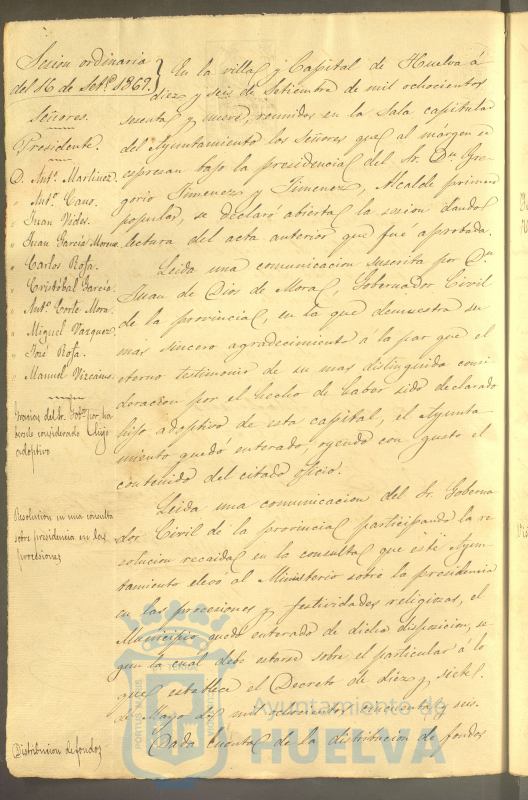 Sesion ordinaria
del 16 de Setre. 1869.
Señores.
Presidente.
D. Anto. Martinez.
" Anto. Caus.
" Juan Vides.
" Juan Garcia Moreno.
" Carlos Rofa.
" Cristobal Garcia.
" Anto. Corte Mora.
" Miguel Vazquez.
" José Rofa.
" Manuel Vizcaino.
Gracias del Sr. Gobor. por ha
berle considerado hijo
adoptivo
Resolucion en una consulta
sobre presidencia en las
procesiones
Distribucion de fondos
En la villa y Capital de Huelva á
diez y seis de Setiembre de mil ochocientos
sesenta y nueve, reunidos en la Sala capitular
del Ayuntamiento los Señores que al margen se
espresan bajo la presidencia del Sr. Dn. Gre-
gorio Jimenez y Jimenez, Alcalde primero
popular, se declaró abierta la sesion dando
lectura del acta anterior que fué aprobada.
Leida una comunicacion suscrita por Dn.
Juan de Dios de Mora, Gobernador Civil
de la provincia, en la que demuestra su
mas sincero agradecimiento á la par que el
eterno testimonio de su mas distinguida consi-
deracion por el hecho de haber sido declarado
hijo adoptivo de esta capital, el Ayunta-
miento quedó enterado, oyendo con gusto el
contenido del citado oficio.
Leida una comunicacion del Sr. Goberna-
dor Civil de la provincia participando la re-
solucion recaida en la consulta que este Ayun-
tamiento elevó al Ministerio sobre la presidencia
en las procesiones y festividades religiosas, el
Municipio quedó enterado de dicha disposicion, se-
gun la cual debe estarse sobre el particular á lo
que establece el Decreto de diez y siete
de Mayo de mil ochocientos sesenta y seis.
Dada cuenta de la distribucion de fondos
Ayuntamiento de
HUELVA